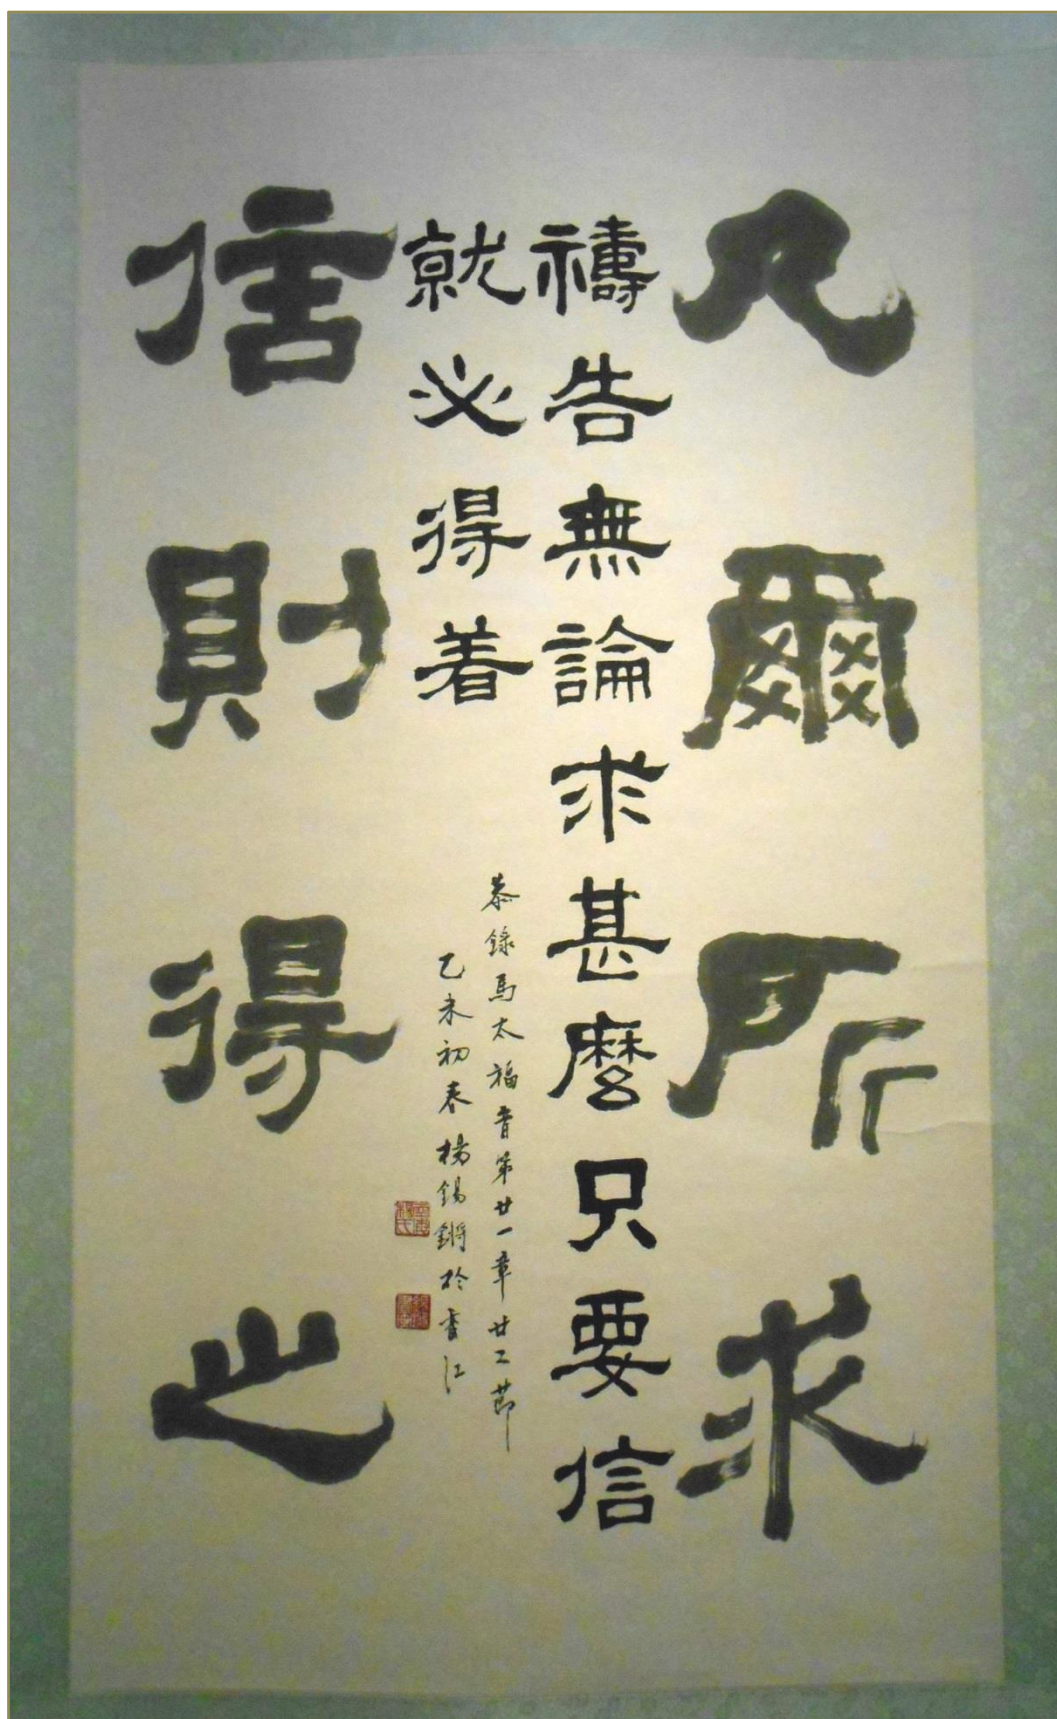 凡爾所求
禱告無論求甚麼只要信
就必得着
恭錄馬太福音第廿一章廿二節
乙未初春楊錫鏘於香江
信則得之